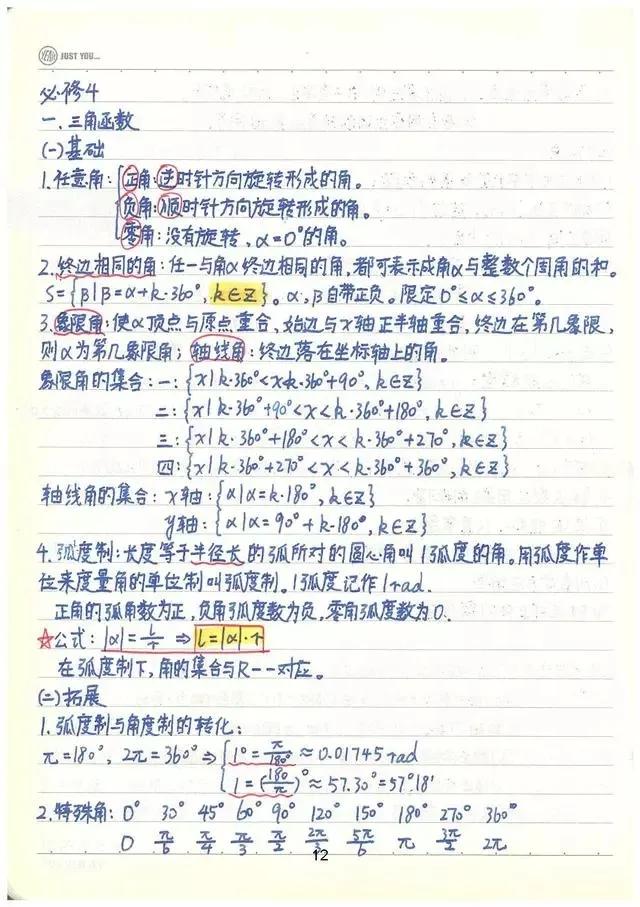 YEAH JUST YOU...
必修4
一、三角函数
(一)基础
1.任意角:{正角:逆时针方向旋转形成的角。
负角:顺时针方向旋转形成的角。
零角:没有旋转,α=0°的角。
2.终边相同的角:任一与角α终边相同的角,都可表示成角α与整数个周角的和。
S={β|β=α+k·360°,k∈Z}。α,β自带正负。限定0°≤α≤360°。
3.象限角:使α顶点与原点重合,始边与x轴正半轴重合,终边在第几象限,
则α为第几象限角;轴线角:终边落在坐标轴上的角。
象限角的集合:一:{x|k·360°<x<k·360°+90°,k∈Z}
二:{x|k·360°+90°<x<k·360°+180°,k∈Z}
三:{x|k·360°+180°<x<k·360°+270°,k∈Z}
四:{x|k·360°+270°<x<k·360°+360°,k∈Z}
轴线角的集合:x轴:{α|α=k·180°,k∈Z}
y轴:{α|α=90°+k·180°,k∈Z}
4.弧度制:长度等于半径长的弧所对的圆心角叫1弧度的角。用弧度作单
位来度量角的单位制叫弧度制。1弧度记作1rad.
正角的弧角数为正,负角弧度数为负,零角弧度数为0.
☆公式:|α|=l/r ⇒ l=|α|·r
在弧度制下,角的集合与R一一对应。
(二)拓展
1.弧度制与角度制的转化:
π=180°, 2π=360° ⇒ {1°=π/180°≈0.01745rad
1=(180/π)°≈57.30°=57°18'
2.特殊角: 0° 30° 45° 60° 90° 120° 150° 180° 270° 360°
0 π/6 π/4 π/3 π/2 2π/3 5π/6 π 3π/2 2π
12